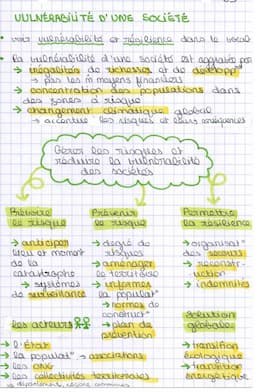 VULNÉRABILITÉ D'UNE SOCIÉTÉ
• voir vulnérabilité et résilience dans le vocab
• la vulnérabilité d'une société est aggravée par
→ inégalités de richesses et de développt
→ pas les m̂ moyens financiers
→ concentration des populations dans
des zones à risque
→ changement climatique global
→ accentue les risques et leurs conséquences
Gérer les risques et
réduire la vulnérabilité
des sociétés
Prévoir
le risque
→ anticiper
lieu et moment
de la
catastrophe
→ systèmes
de surveillance
Prévenir
le risque
→ degré de
risques
→ aménager
le territoire
→ informer
la populat°
→ normes de
construct°
→ plan de
prévention
Permettre
la résilience
→ organisat°
des secours
→ reconstr-
uction
→ indemnités
les acteurs
→ l'État
→ la populat° → associations
→ les ONG
→ les collectivités territoriales
↳ département, région, communes
solution
globale
→ transition
écologique
→ transition
énergétique